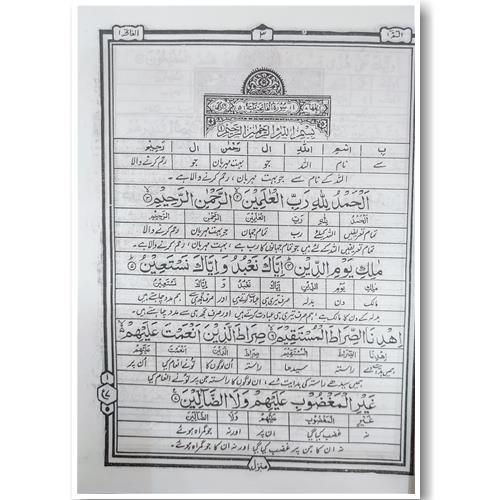 الفاتحة ۱
۳
بِسْمِ اللّٰهِ الرَّحْمٰنِ الرَّحِيْمِ
بِ اسْمِ اللّٰهِ ال رَحْمٰنِ ال رَحِيْمِ
سے نام اللہ جو بہت مہربان جو رحم کرنے والا
اللہ کے نام سے جو بہت مہربان، رحم کرنے والا ہے۔
اَلْحَمْدُ لِلّٰهِ رَبِّ الْعٰلَمِيْنَ ۱ الرَّحْمٰنِ الرَّحِيْمِ ۲
اَلْحَمْدُ لِلّٰهِ رَبِّ الْعٰلَمِيْنَ الرَّحْمٰنِ الرَّحِيْمِ
تمام تعریفیں اللہ کیلئے رب تمام جہان جو بہت مہربان رحم کرنے والا
تمام تعریفیں اللہ کے لئے ہیں جو تمام جہانوں کا رب ہے، بہت مہربان، رحم کرنے والا ہے۔
مٰلِكِ يَوْمِ الدِّيْنِ ۳ اِيَّاكَ نَعْبُدُ وَ اِيَّاكَ نَسْتَعِيْنُ ۴
مٰلِكِ يَوْمِ الدِّيْنِ اِيَّاكَ نَعْبُدُ وَ اِيَّاكَ نَسْتَعِيْنُ
مالک دن بدلہ صرف تیری ہی ہم عبادت کرتے ہیں اور صرف تجھ ہی سے ہم مدد چاہتے ہیں
بدلہ کے دن کا مالک ہے، ہم صرف تیری ہی عبادت کرتے ہیں اور صرف تجھ ہی سے مدد چاہتے ہیں۔
اِهْدِنَا الصِّرَاطَ الْمُسْتَقِيْمَ ۵ صِرَاطَ الَّذِيْنَ اَنْعَمْتَ عَلَيْهِمْ
اِهْدِنَا الصِّرَاطَ الْمُسْتَقِيْمَ صِرَاطَ الَّذِيْنَ اَنْعَمْتَ عَلَيْهِمْ
راستہ سیدھا راستہ ان لوگوں کا تو نے انعام کیا ان پر
ہمیں سیدھے راستہ کی ہدایت دے، ان لوگوں کا راستہ جن پر تو نے انعام کیا
غَيْرِ الْمَغْضُوْبِ عَلَيْهِمْ وَلَا الضَّآلِّيْنَ
غَيْرِ الْمَغْضُوْبِ عَلَيْهِمْ وَلَا الضَّآلِّيْنَ
نہ غضب کیا گیا ان پر اور نہ جو گمراہ ہوئے
نہ ان کا جن پر غضب کیا گیا اور نہ ان کا جو گمراہ ہوئے۔
منزل